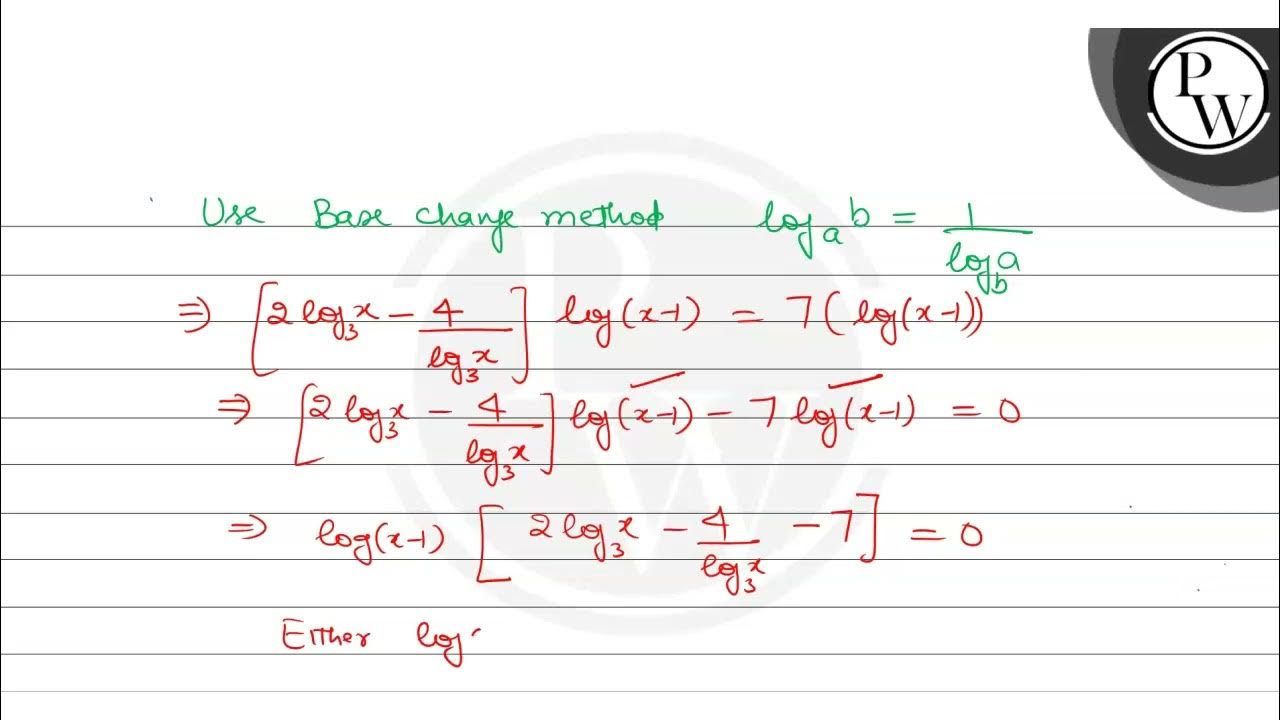 PW
Use Base change method log_a b = 1/log_b a
⇒ [2 log_3 x − 4/log_3 x] log(x−1) = 7(log(x−1))
⇒ [2 log_3 x − 4/log_3 x] log(x−1) − 7 log(x−1) = 0
⇒ log(x−1) [2 log_3 x − 4/log_3 x − 7] = 0
Either log